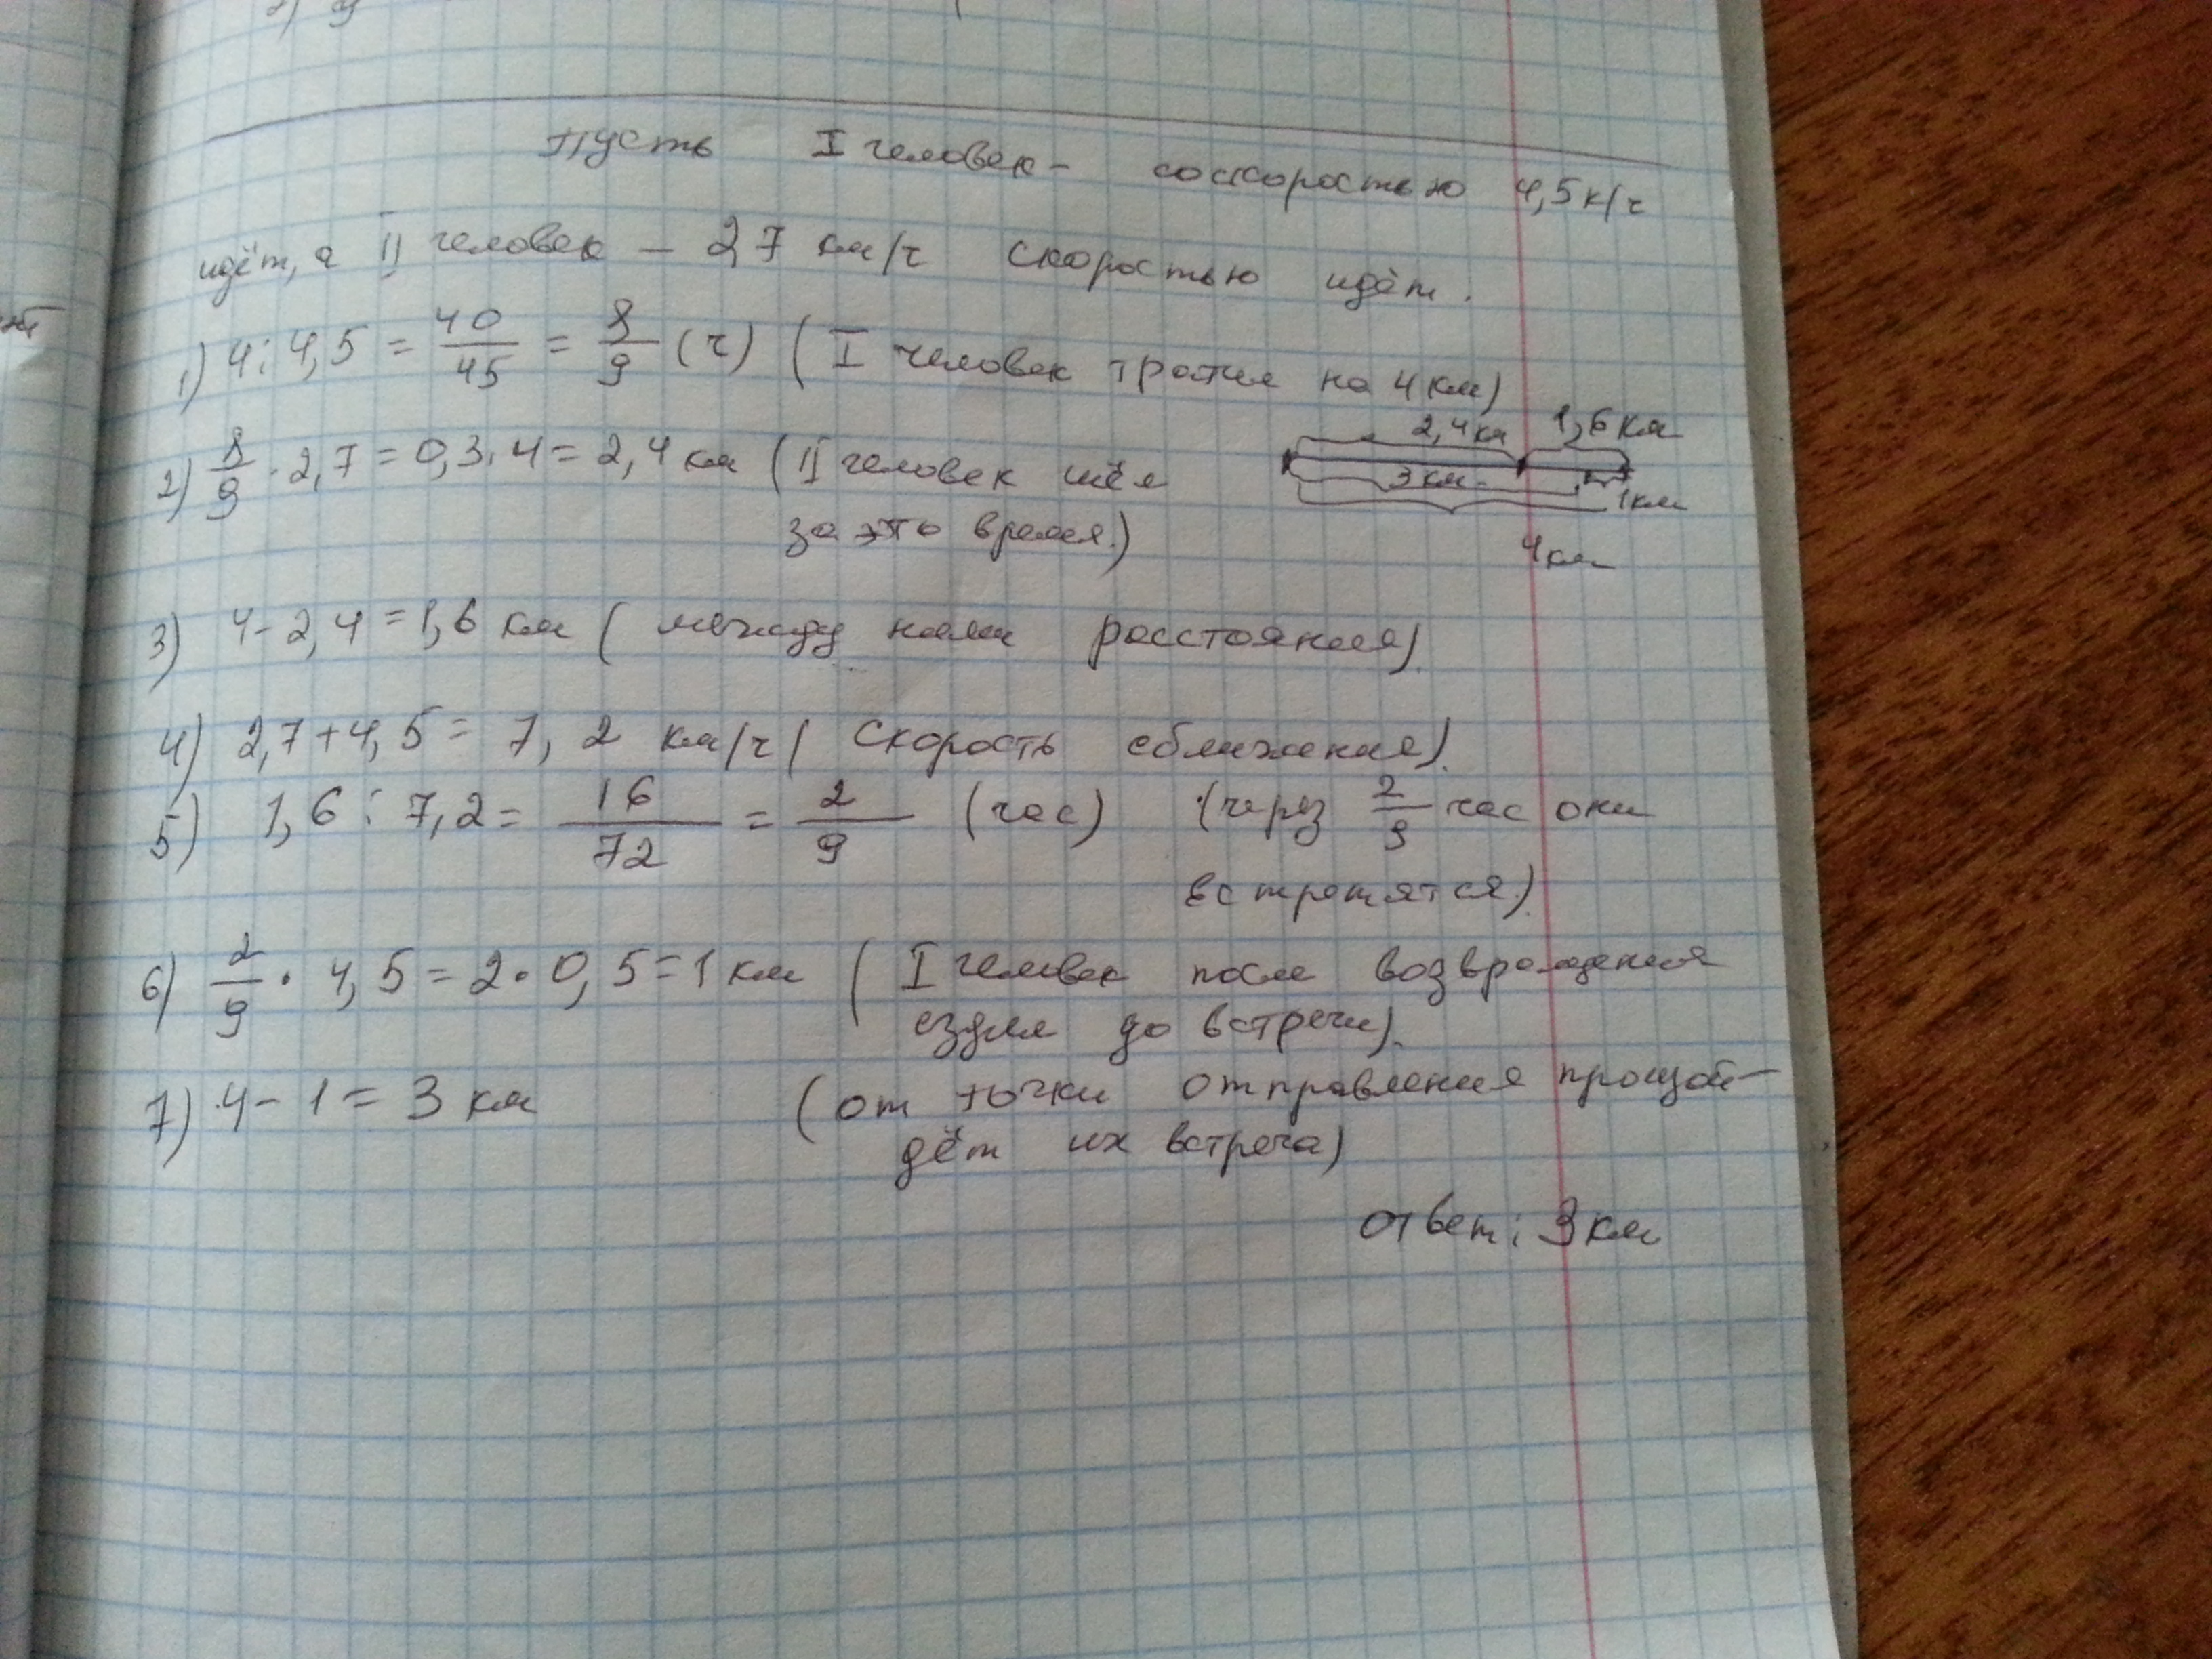 Пусть I человек – со скоростью 4,5 к/ч
идёт, а II человек – 2,7 км/ч скоростью идёт.
1) 4 : 4,5 = 40/45 = 8/9 (ч) (I человек тратил на 4 км)
2) 8/9 · 2,7 = 0,3 · 4 = 2,4 км (II человек шёл
за это время.)
2,4 км 1,6 км
3 км 1 км
4 км
3) 4 - 2,4 = 1,6 км (между ними расстояния).
4) 2,7 + 4,5 = 7,2 км/ч (скорость сближения).
5) 1,6 : 7,2 = 16/72 = 2/9 (час) (через 2/9 час они
встретятся.)
6) 2/9 · 4,5 = 2 · 0,5 = 1 км (I человек после возвращения
ездил до встречи).
7) 4 - 1 = 3 км (от точки отправления прощой-
дёт их встреча)
ответ: 3 км